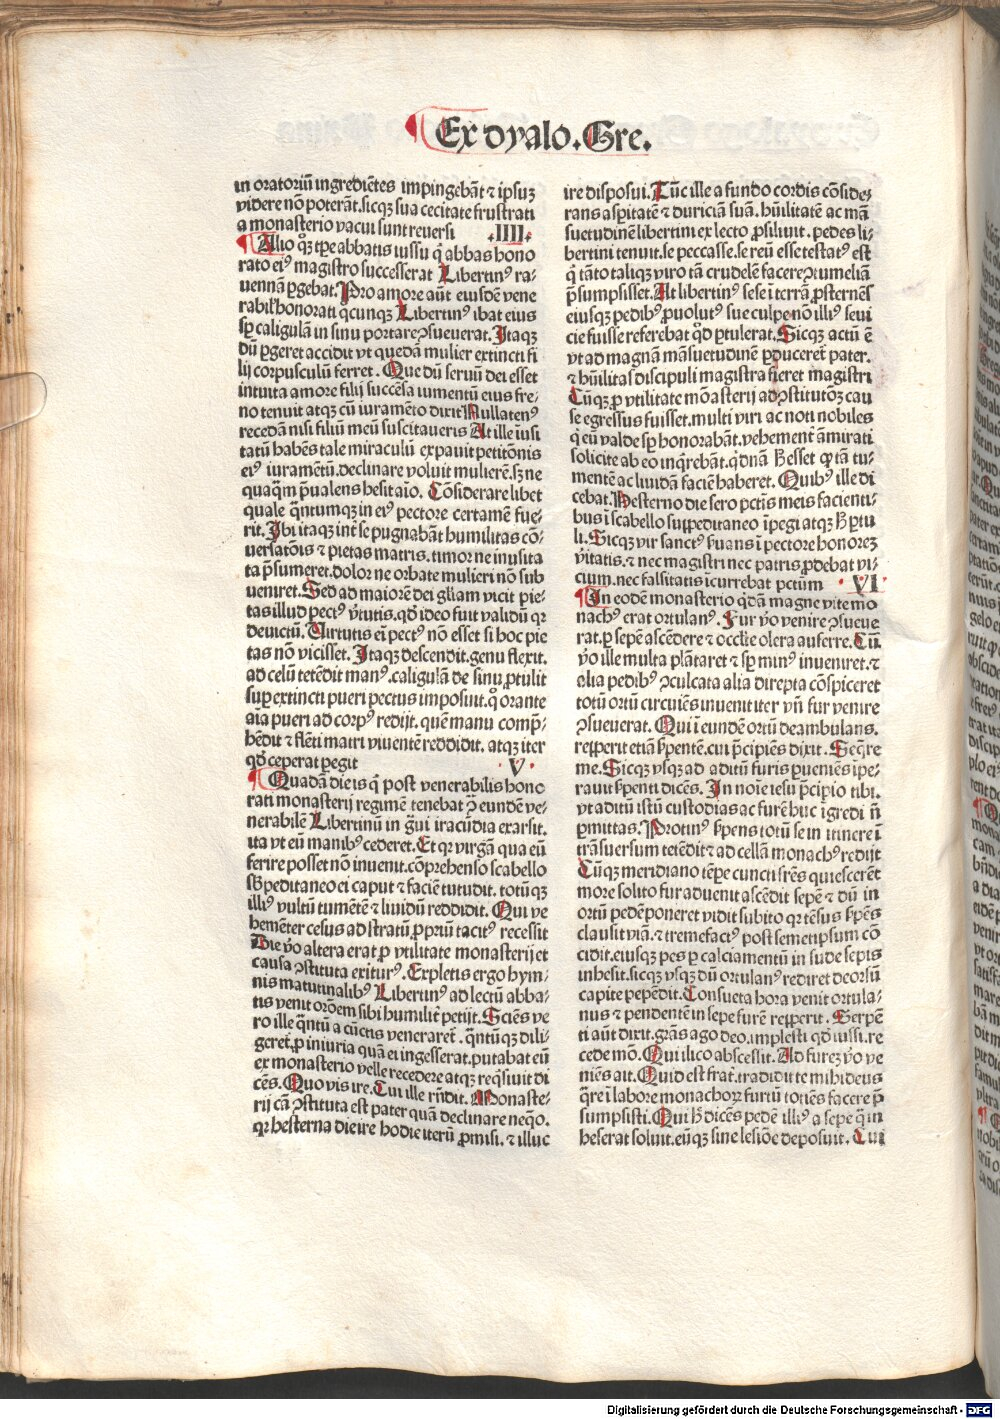 Ex dyalo. Gre.
in oratoriū ingrediētes impingebāt ⁊ ipsuꝫ
videre nō poterāt. sicqꝫ sua cecitate frustrati
a monasterio vacui sunt reuersi .IIII.
Alio qͦꝫ tꝑe abbatis iussu q̄ abbas hono
rato eiꝰ magistro successerat Libertinꝰ ra⸗
uennā ꝑgebat. Pro amore aūt eiusdē vene
rabilꝭ honorati q̄cunqꝫ Libertinꝰ ibat eius
sꝑ caligulā in sinu portare ꝯsueuerat. Itaqꝫ
dū ꝑgeret accidit vt quedā mulier extincti fi
lij corpusculū ferret. Que dū seruū dei esset
intuita amore filij succēsa iumentū eius fre⸗
no tenuit atqꝫ cū iuramēto dixit Nullatenꝰ
recedā nisi filiū meū suscitaueris At ille īusi
tatū habēs tale miraculū expauit petitōnis
eiꝰ iuramētū. declinare voluit mulierē. sꝫ ne
quaq̄m p̄ualens hesitauit. Cōsiderare libet
quale q̄ntumqꝫ in eiꝰ pectore certamē fue⸗
rit. Ibi itaqꝫ int̄ se pugnabāt humilitas cō⸗
uersatōis ⁊ pietas matris. timor ne inusita
ta p̄sumeret. dolor ne orbate mulieri nō sub
ueniret. Sed ad maiorē dei gl̄iam vicit pie⸗
tas illud pectꝰ v̄tutis. qd̄ ideo fuit validū qꝛ
deuictū. Uirtutis em̄ pectꝰ nō esset si hoc pie
tas nō vicisset. Itaqꝫ descendit. genu flexit.
ad celū tetēdit manꝰ. caligulā de sinu ꝓtulit
suꝑ extincti pueri pectus imposuit. qͦ orante
aīa pueri ad corpꝰ redijt. quē manu comp̄⸗
hēdit ⁊ flēti matri viuentē reddidit. atqꝫ iter
qd̄ ceperat ꝑegit .V.
Quadā die is q̄ post venerabilis hono
rati monasterij regimē tenebat ꝯ̄ eundē ve⸗
nerabilē Libertinū in g̃ui iracūdia exarsit.
ita vt eū manibꝰ cederet. Et qꝛ virgā qua eū
ferire posset nō inuenit. cōprehenso scabello
sb̄peditaneo ei caput ⁊ faciē tutudit. totūqꝫ
illiꝰ vultū tumētē ⁊ liuidū reddidit. Qui ve
hemēter cesus ad stratū ꝓpriū tacitꝰ recessit
Die v̄o altera erat ꝓ vtilitate monasterij et
causa ꝯstituta exiturꝰ. Expletis ergo hym⸗
nis matutinalibꝰ Libertinꝰ ad lectū abba⸗
tis venit or̄oem sibi humilit̄ petijt. Sciēs ve
ro ille q̄ntū a cūctis veneraret̄. q̄ntūqꝫ dili⸗
geret̄. ꝓ iniuria quā ei ingesserat. putabat eū
ex monasterio velle recedere atqꝫ reqͥsiuit di
cēs. Quo vis ire. Cui ille rn̄dit. Monaste⸗
rij cā ꝯstituta est pater quā declinare neqͦ.
qꝛ hesterna die ire hodie iterū ꝓmisi. ⁊ illuc
ire disposui. Tūc ille a fundo cordis cōside⸗
rans asꝑitatē ⁊ duriciā suā. hūilitatē ac mā
suetudinē libertini ex lecto ꝓsiliuit. pedes li⸗
bertini tenuit. se peccasse. se reū esse testatꝰ est
q̄ tāto taliqꝫ viro tā crudelē facere ꝯtumeliā
p̄sumpsisset. At libertinꝰ sese ī terrā ꝓsternēs
eiusqꝫ pedibꝰ ꝓuolutꝰ sue culpe nō illiꝰ seui
cie fuisse referebat qd̄ ꝑtulerat. Sicqꝫ actū ē
vt ad magnā māsuetudinē ꝑduceret̄ pater.
⁊ hūilitas discipuli magistra fieret magistri
Cūqꝫ ꝓ vtilitate mōasterij ad ꝯstitutoꝫ cau
se egressus fuisset. multi viri ac noti nobiles
q̄ eū valde sꝑ honorabāt. vehement̄ āmirati
solicite ab eo inq̄rebāt. qd̄nā h̄ esset qꝙ tā tu⸗
mentē ac liuidā faciē haberet. Quibꝰ ille di
cebat. Hesterno die sero pctīs meis facienti⸗
bus ī scabello suppeditaneo īpegi atqꝫ h̄ ꝑtu
li. Sicqꝫ vir sanctꝰ ẜuans ī pectore honoreꝫ
v̄itatis. ⁊ nec magistri nec patris ꝓdebat vi⸗
cium. nec falsitatis īcurrebat pctūm .VI.
In eodē monasterio qͥdā magne vite mo
nachꝰ erat ortulanꝰ. Fur v̄o venire ꝯsueue
rat. ꝑ sepē ascēdere ⁊ occl̄te olera auferre. Cū
v̄o ille multa plātaret ⁊ sꝑ minꝰ inueniret. ⁊
alia pedibꝰ ꝯculcata alia direpta cōspiceret
totū ortū circuiēs inuenit iter vn̄ fur venire
ꝯsueuerat. Qui ī eundē ortū deambulans.
reꝑperit etiā ẜpentē. cui p̄cipiēs dixit. Seq̄re
me. Sicqꝫ vsqꝫ ad aditū furis ꝑueniēs īpe⸗
rauit ẜpenti dicēs. In noīe iesu p̄cipio tibi.
vt aditū istū custodias ac furē huc īgredi n̄
ꝑmittas. Protinꝰ ẜpens totū se in itinere ī
trāsuersum tetēdit ⁊ ad cellā monachꝰ redijt
Cūqꝫ meridiano tēpe cuncti fr̄es quiescerēt
more solito fur aduenit ascēdit sepē ⁊ dū in
ortū pedē poneret vidit subito qꝛ tēsus ẜpēs
clausit viā. ⁊ tremefactꝰ post semetipsum cō
cidit. eiusqꝫ pes ꝑ calciamentū in sude sepis
inhesit. sicqꝫ vsqꝫ dū ortulanꝰ rediret deorsū
capite pepēdit. Consueta hora venit ortula⸗
nus ⁊ pendentē in sepe furē reꝑperit. Serpē
ti aūt dixit. gr̄as ago deo. implesti qd̄ iussi. re
cede mō. Qui ilico abscessit. Ad fureꝫ v̄o ve
niēs ait. Quid est frat̄. tradidit te mihi deus
q̄re ī labore monachoꝝ furtū toties facere p̄
sumpsisti. Qui h̄ dicēs pedē illiꝰ a sepe qͣ in
heserat soluit. eūqꝫ sine lesiōe deposuit. Cui
Digitalisierung gefördert durch die Deutsche Forschungsgemeinschaft - DFG